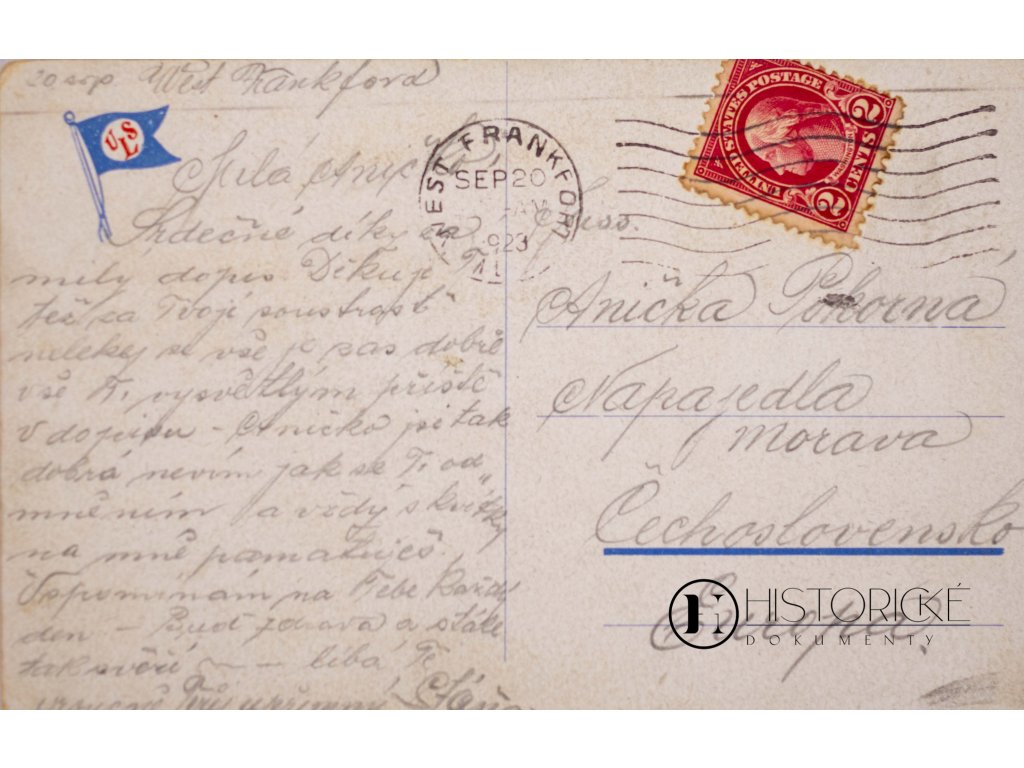 20 srp West Frankford
ULS
Milá Aničko
Srdečné díky za
milý dopis Děkuji Ti
též za Tvoji soustrast
nelekej se vše je zas dobře
vše Ti vysvětlým příště
v dopisu – Aničko jsi tak
dobrá nevím jak se Ti od
měním a vždy s kvítky
na mně pamatuješ.
Vspomínám na Tebe každý
den – Buď zdrava a stále
tak svěží – líbá Tě
Tvůj upřímný
WEST FRANKFORT
SEP 20
1923
ILL.
UNITED STATES POSTAGE
2 CENTS 2
Miss.
Anička Pokorná
Napajedla
Morava
Čechoslovensko
Europa.
HISTORICKÉ
DOKUMENTY